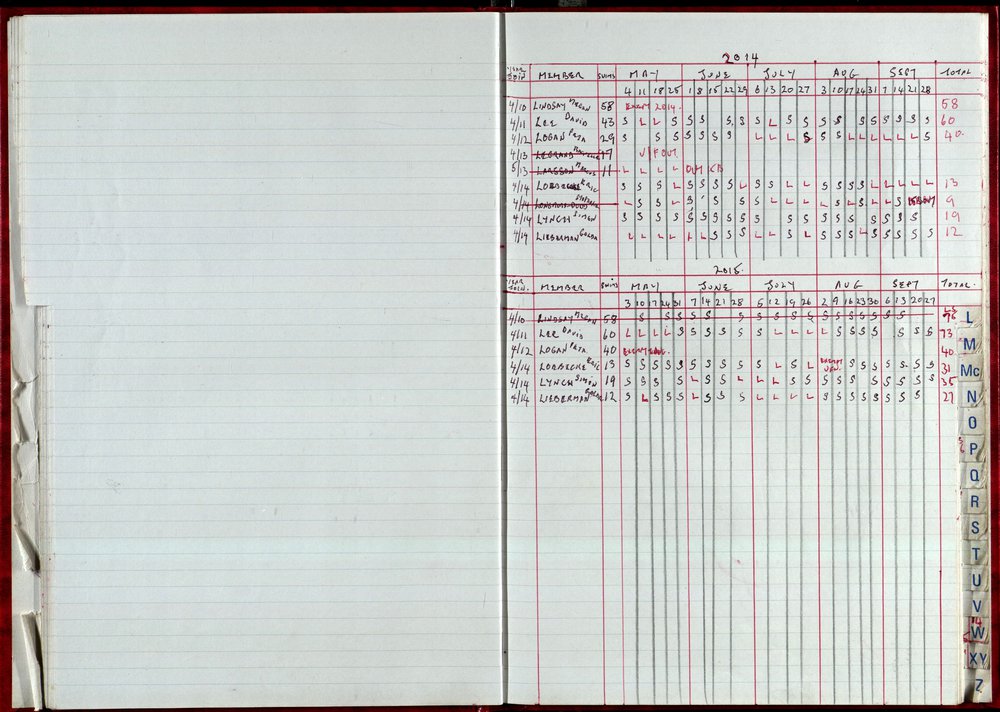 2014
YEAR JOIN MEMBER SWIMS MAY JUNE JULY AUG SEPT TOTAL
4 11 18 25 1 8 15 22 29 6 13 20 27 3 10 17 24 31 7 14 21 28
4/10 LINDSAY MEGAN 58 EXEMPT 2014. 58
4/11 LEE DAVID 43 S L L S S S S S S L S S S S S S S S S 60
4/12 LOGAN PETA 29 S S S S S S S L L S S S L L L L L L S 40
4/13 17 V/F OUT
5/13 LARSSON 11 L L L L OUT
4/14 LOEBECKE ERIC S S S L S S S S L S S L L S S S S L L L L L 13
4/14 L S S L S S S S S L L L S L S L L S 9
4/14 LYNCH SIMON S S S S S S S S S S S S S S S S S S S S 19
4/14 LIEBERMAN L L L L L L S S S L L S L S S S L S S S S S 12
2015.
YEAR JOIN. MEMBER SWIMS MAY JUNE JULY AUG SEPT TOTAL.
3 10 17 24 31 7 14 21 28 5 12 19 26 2 9 16 23 30 6 13 20 27
4/10 LINDSAY MEGAN 58 S S S S S S S S S S S S S S S S S S
4/11 LEE DAVID 60 L L L L S S S S S S L L L L S S S S S S S S 73
4/12 LOGAN PETA 40 40
4/14 LOEBECKE ERIC 13 S S S S S S S S S S L S L EXEMPT S S S S S S S S 31
4/14 LYNCH SIMON 19 S S S S L S S L L L S S S S S S S S S S 35
4/14 LIEBERMAN 12 S L S S S L S S S L L L L S S S S S S S S 27
L
M
Mc
N
O
P
Q
R
S
T
U
V
W
XY
Z